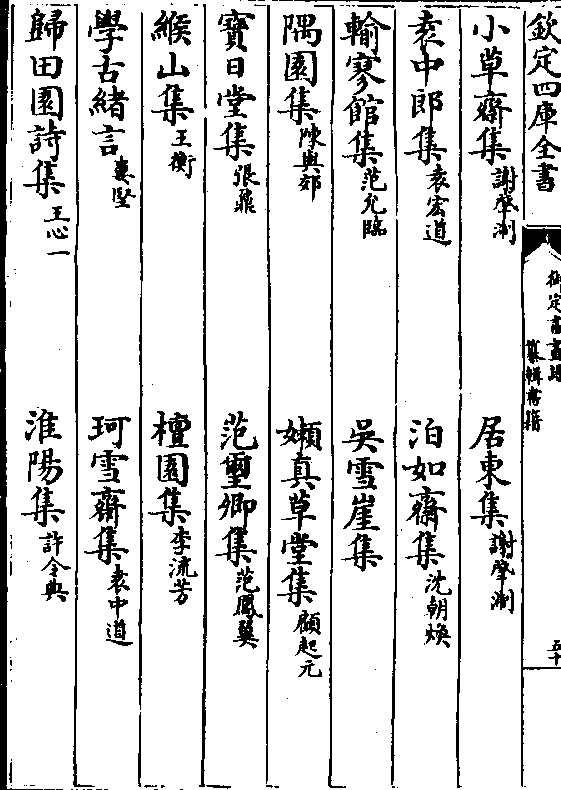 欽定四庫全書
御定書畫譜
纂輯書籍
五十
小草齋集謝肇淛 居東集謝肇淛
袁中郎集袁宏道 泊如齋集沈朝煥
輸寥館集范允臨 吳雪崖集
隅園集陳與郊 嬾真草堂集顧起元
寶日堂集張鼐 范璽卿集范鳳翼
緱山集王衡 檀園集李流芳
學古緒言婁堅 珂雪齋集袁中道
歸田園詩集王心一 淮陽集許令典